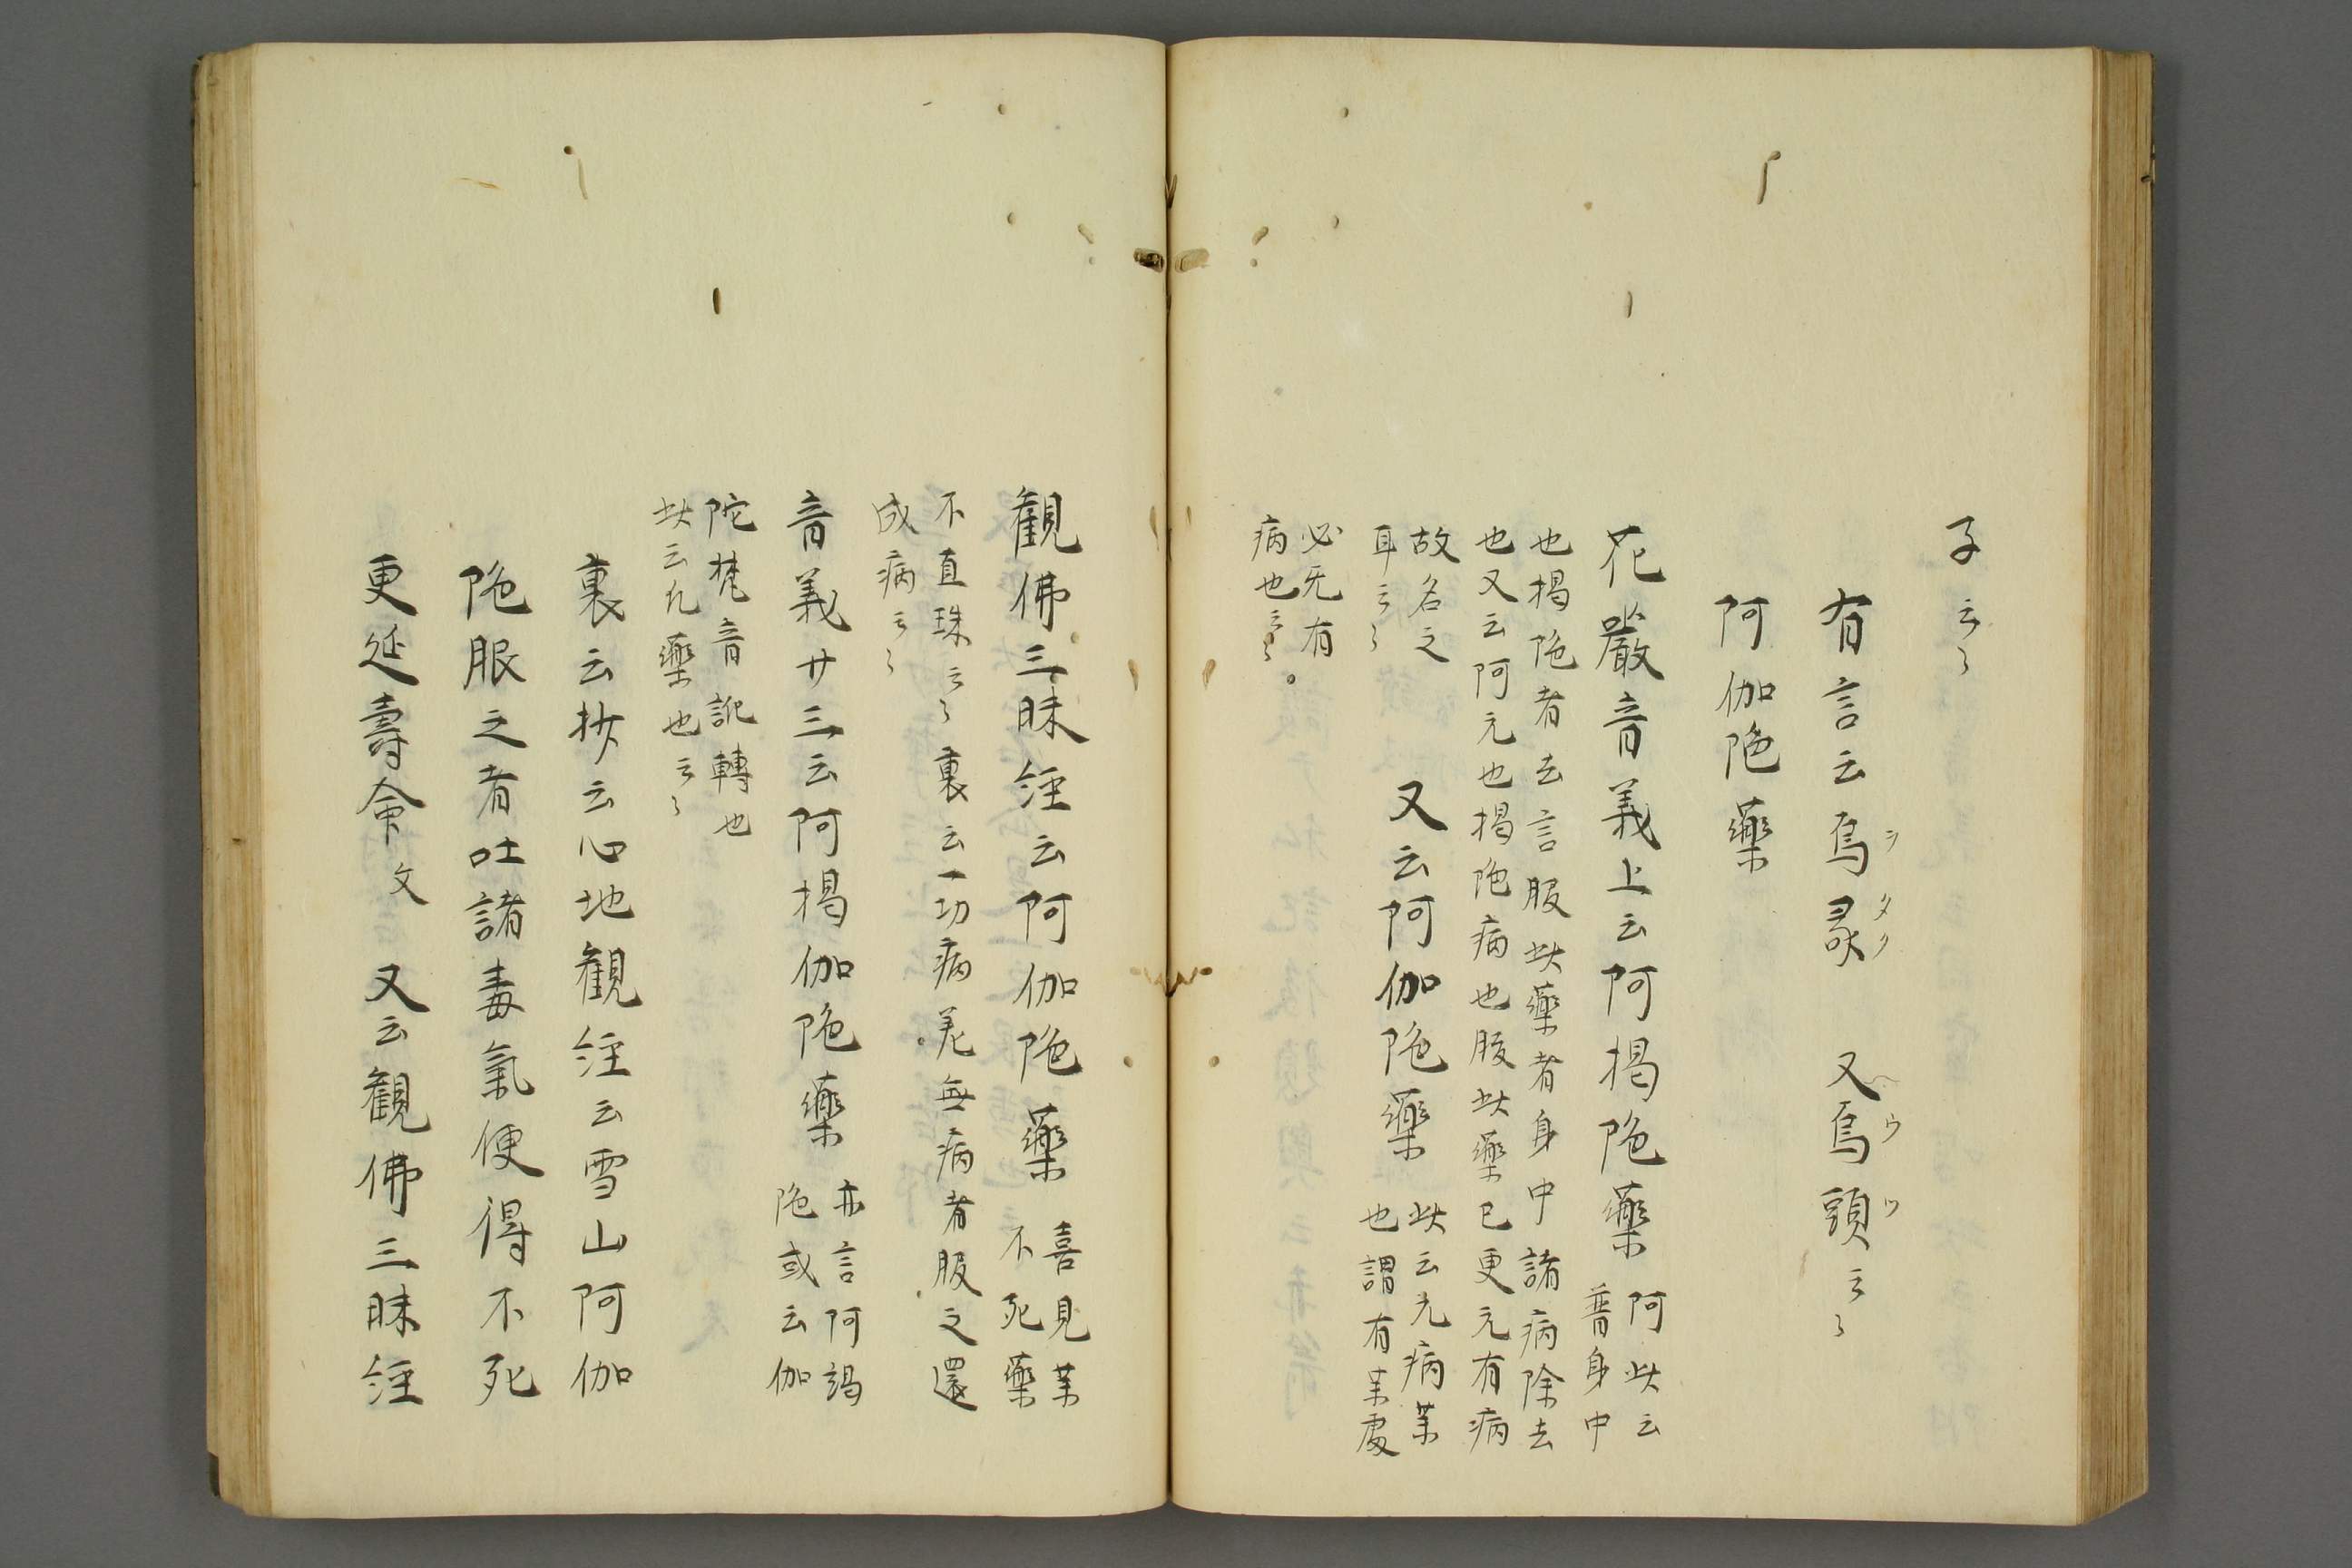 子云〻
有言云烏彔 又烏頭云〻
阿伽陁藥
花嚴音義上云阿揭陁藥
阿此云
普身中
也揭陁者去言服此藥者身中諸病除去
也又云阿无也揭陁病也服此藥已更无有病
故名之
耳云〻
又云阿伽陁藥
此云无病茉
也謂有茉處
必无有
病也云〻
観佛三昧経云阿伽陁藥
喜見茉
不死藥
不直珠云〻裏云一切病羌無病者服之還
成病云〻
音義廿三云阿揭伽陁藥
亦言阿竭
陁或云伽
陀梵音訛轉也
此云丸藥也云〻
裏云抄云心地観経云雪山阿伽
陁服之者吐諸毒氣便得不死
更延壽命文 又云観佛三昧経